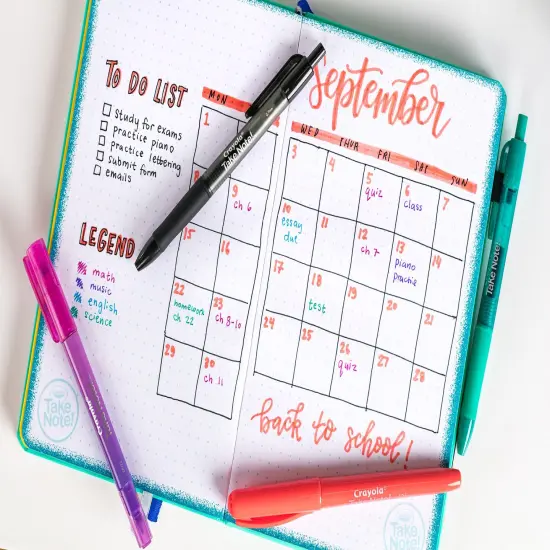 TO DO LIST
study for exams
practice piano
practice lettering
submit form
emails
LEGEND
math
music
english
science
Take Note!
September
MON
WED THUR FRI SAT SUN
1
3 4 5 6 7
quiz class
8 9
ch 6
10 11 12 13 14
essay due
ch 7
piano practice
15 16
17 18 19 20 21
test
22 23
homework ch 22
ch 8-10
24 25 26 27 28
quiz
29 30
ch 11
back to school!
Crayola
Take Note!
Take Note!
Crayola
Take Note!